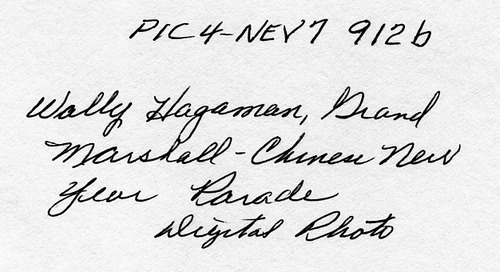 PIC 4-NEV7 912b
Wally Hagaman, Grand
Marshall - Chinese New
Year Parade
Digital Photo